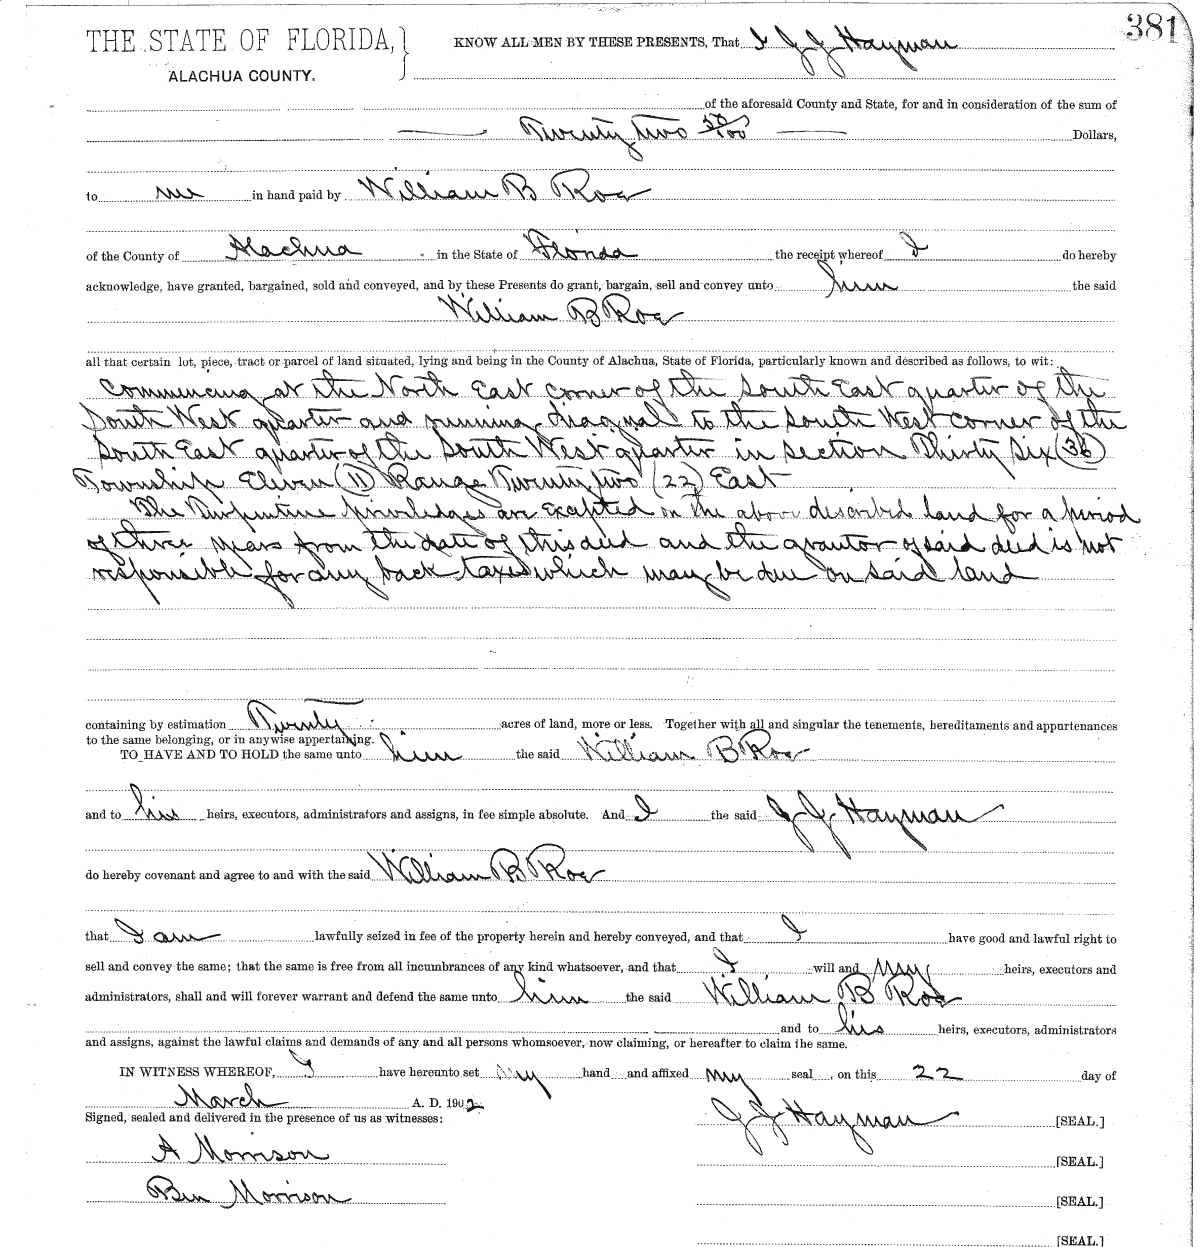 381
THE STATE OF FLORIDA,
ALACHUA COUNTY.
KNOW ALL MEN BY THESE PRESENTS, That I J J Hayman
of the aforesaid County and State, for and in consideration of the sum of
Twenty two 50/100 Dollars,
to me in hand paid by William B Roe
of the County of Alachua in the State of Florida the receipt whereof I do hereby
acknowledge, have granted, bargained, sold and conveyed, and by these Presents do grant, bargain, sell and convey unto him the said
William B Roe
all that certain lot, piece, tract or parcel of land situated, lying and being in the County of Alachua, State of Florida, particularly known and described as follows, to wit:
Commencing at the North East corner of the South East quarter of the
South West quarter and running diagonal to the South West corner of the
South East quarter of the South West quarter in section Thirty Six (36)
Township Eleven (11) Range Twenty two (22) East
The Turpentine priviledges are Excepted on the above described land for a period
of three years from the date of this deed and the grantor of said deed is not
responsible for any back taxes which may be due on said land
containing by estimation Twenty acres of land, more or less. Together with all and singular the tenements, hereditaments and appurtenances
to the same belonging, or in anywise appertaining.
TO HAVE AND TO HOLD the same unto him the said William B Roe
and to his heirs, executors, administrators and assigns, in fee simple absolute. And I the said J J Hayman
do hereby covenant and agree to and with the said William B Roe
that I am lawfully seized in fee of the property herein and hereby conveyed, and that I have good and lawful right to
sell and convey the same; that the same is free from all incumbrances of any kind whatsoever, and that I will and my heirs, executors and
administrators, shall and will forever warrant and defend the same unto him the said William B Roe
and to his heirs, executors, administrators
and assigns, against the lawful claims and demands of any and all persons whomsoever, now claiming, or hereafter to claim the same.
IN WITNESS WHEREOF, I have hereunto set my hand and affixed my seal on this 22 day of
March A. D. 1902
Signed, sealed and delivered in the presence of us as witnesses:
J J Hayman [SEAL.]
A Morrison [SEAL.]
Ben Morrison [SEAL.]
[SEAL.]